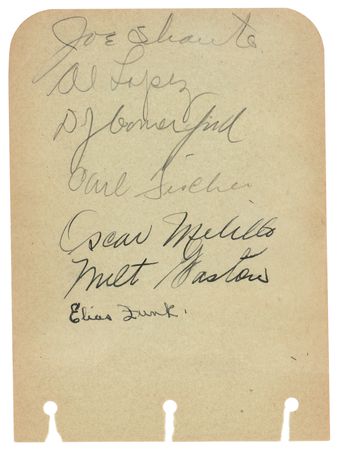 Joe Shaute
Al Lopez
D J Comerford
Carl Fischer
Oscar Melillo
Milt Gaston
Elias Funk.